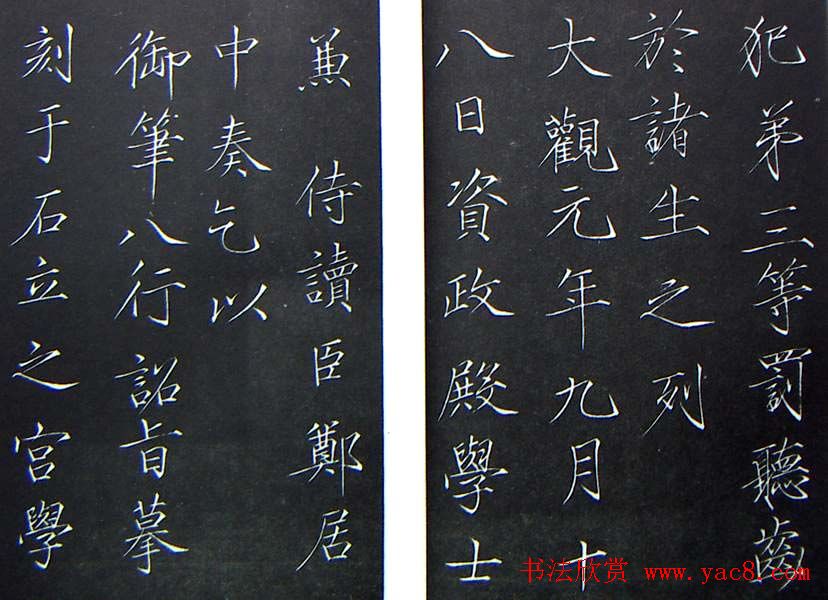 犯弟三等罰聽齒
於諸生之列
大觀元年九月十
八日資政殿學士
兼侍讀臣鄭居
中奏乞以
御筆八行詔旨摹
刻于石立之宮學
书法欣赏 www.yac8.com